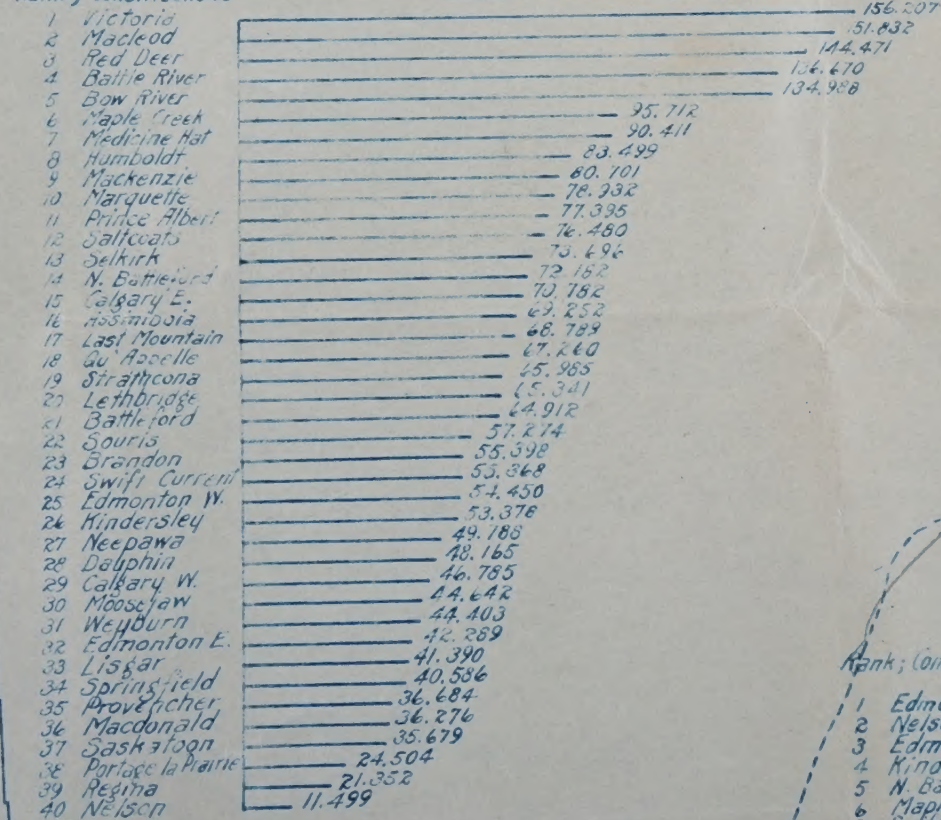 1 Victoria 156.207
2 Macleod 151.832
3 Red Deer 144.471
4 Battle River 136.670
5 Bow River 134.988
6 Maple Creek 95.712
7 Medicine Hat 90.411
8 Humboldt 83.499
9 Mackenzie 80.701
10 Marquette 78.932
11 Prince Albert 77.395
12 Saltcoats 76.480
13 Selkirk 73.696
14 N. Battleford 72.182
15 Calgary E. 70.782
16 Assiniboia 69.252
17 Last Mountain 68.789
18 Qu'Appelle 67.260
19 Strathcona 65.985
20 Lethbridge 65.341
21 Battleford 64.912
22 Souris 57.274
23 Brandon 55.398
24 Swift Current 55.368
25 Edmonton W. 54.450
26 Kindersley 53.376
27 Neepawa 49.788
28 Dauphin 48.165
29 Calgary W. 46.785
30 Moosejaw 44.642
31 Weyburn 44.403
32 Edmonton E. 42.289
33 Lisgar 41.390
34 Springfield 40.586
35 Provencher 36.684
36 Macdonald 36.276
37 Saskatoon 35.679
38 Portage la Prairie 24.504
39 Regina 21.352
40 Nelson 11.499
Rank; Con
1 Edm
2 Nels
3 Edm
4 Kind
5 N. Ba
6 Map